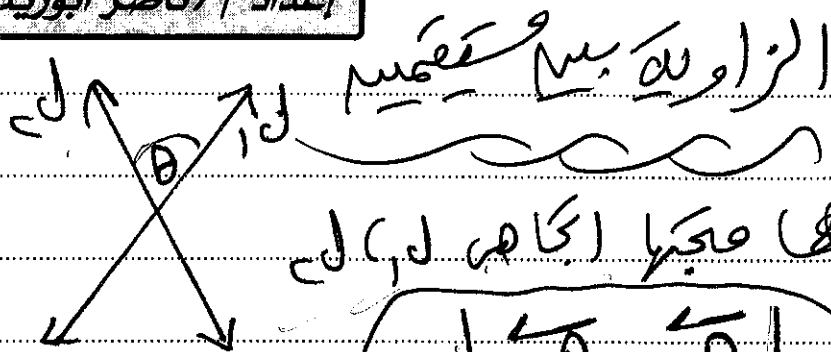 إعداد / أ/ناصر أبوزيد
الزاوية بين مستقيمين
ل٢ θ ل١
متجها اتجاهى ل١، ل٢